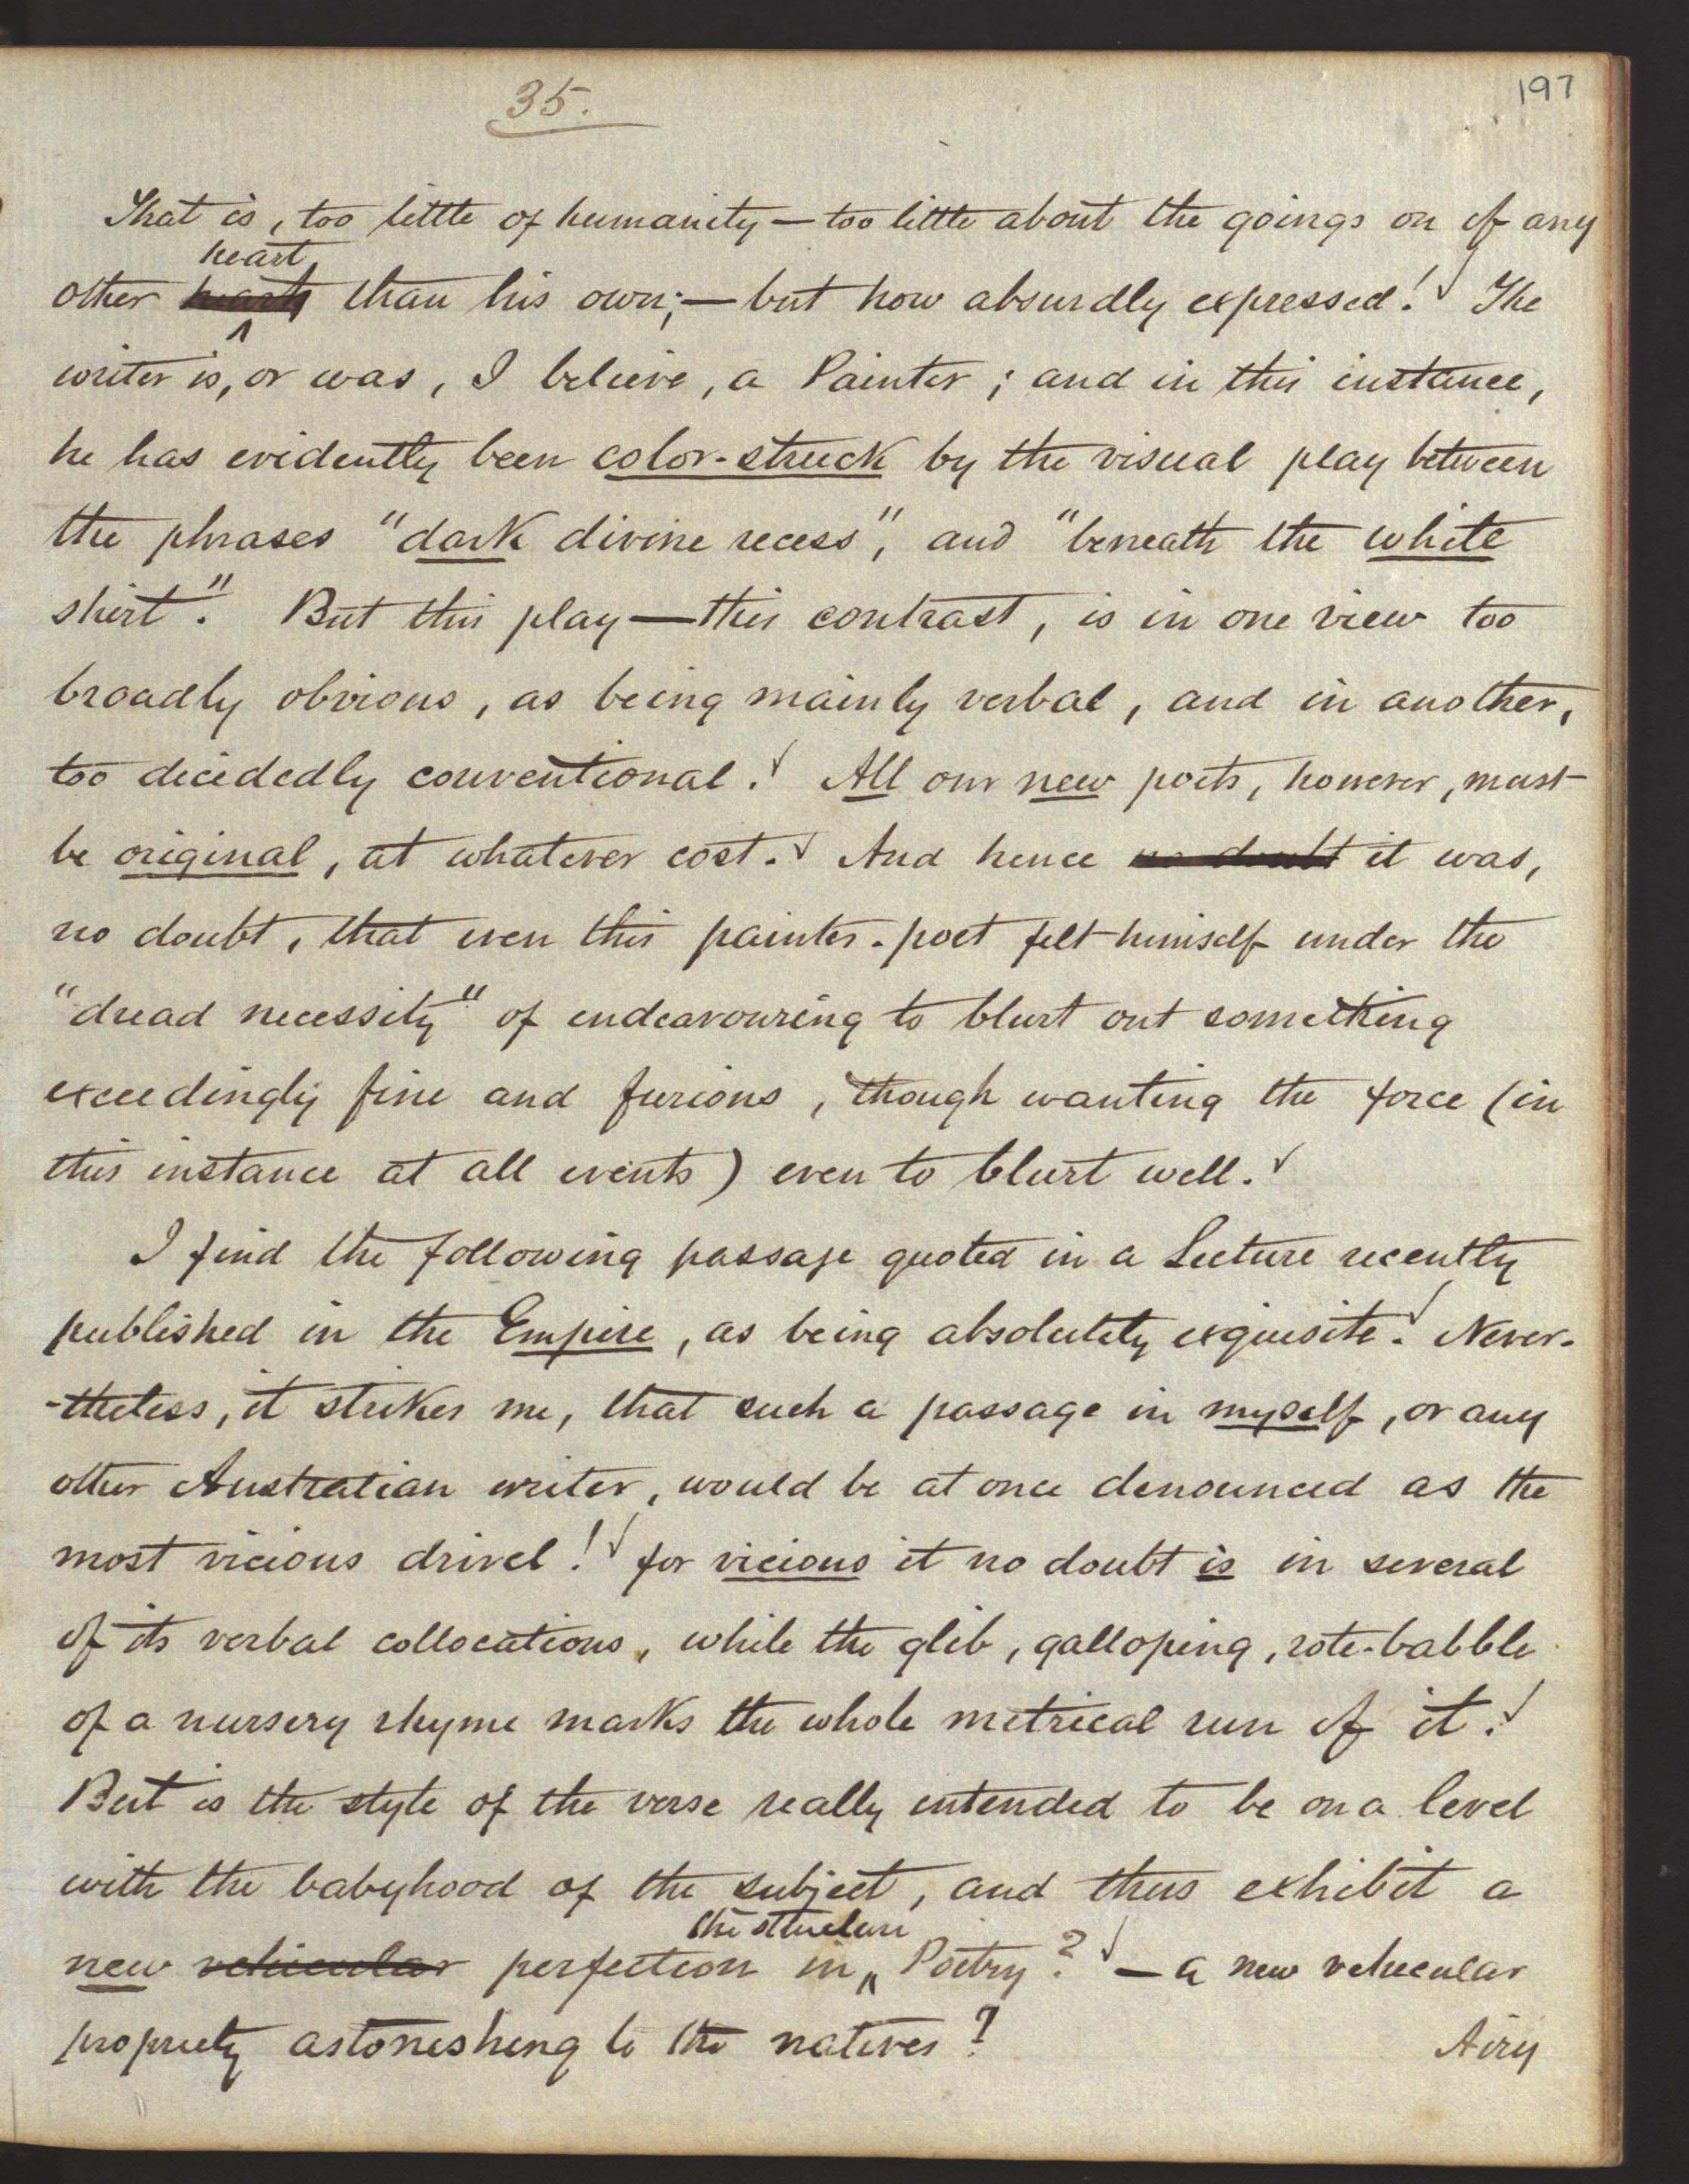 35.
197
That is, too little of humanity — too little about the goings on of any
heart
other hearts than his own; — but how absurdly expressed! The
writer is, or was, I believe, a Painter; and in this instance,
he has evidently been color-struck by the visual play between
the phrases "dark divine recess", and "beneath the white
shirt". But this play — this contrast, is in one view too
broadly obvious, as being mainly verbal, and in another,
too decidedly conventional.! All our new poets, however, must
be original, at whatever cost. And hence no doubt it was,
no doubt, that even this painter-poet felt himself under the
"dread necessity" of endeavouring to blurt out something
exceedingly fine and furious, though wanting the force (in
this instance at all events) even to blurt well.
I find the following passage quoted in a Lecture recently
published in the Empire, as being absolutely exquisite. Never-
-theless, it strikes me, that such a passage in myself, or any
other Australian writer, would be at once denounced as the
most vicious drivel! for vicious it no doubt is in several
of its verbal collocations, while the glib, galloping, rote-babble
of a nursery rhyme marks the whole metrical run of it.
But is the style of the verse really intended to be on a level
with the babyhood of the subject, and thus exhibit a
the structure
new vehicular perfection in Poetry? — a new vehicular
propriety astonishing to the natives?
Airy